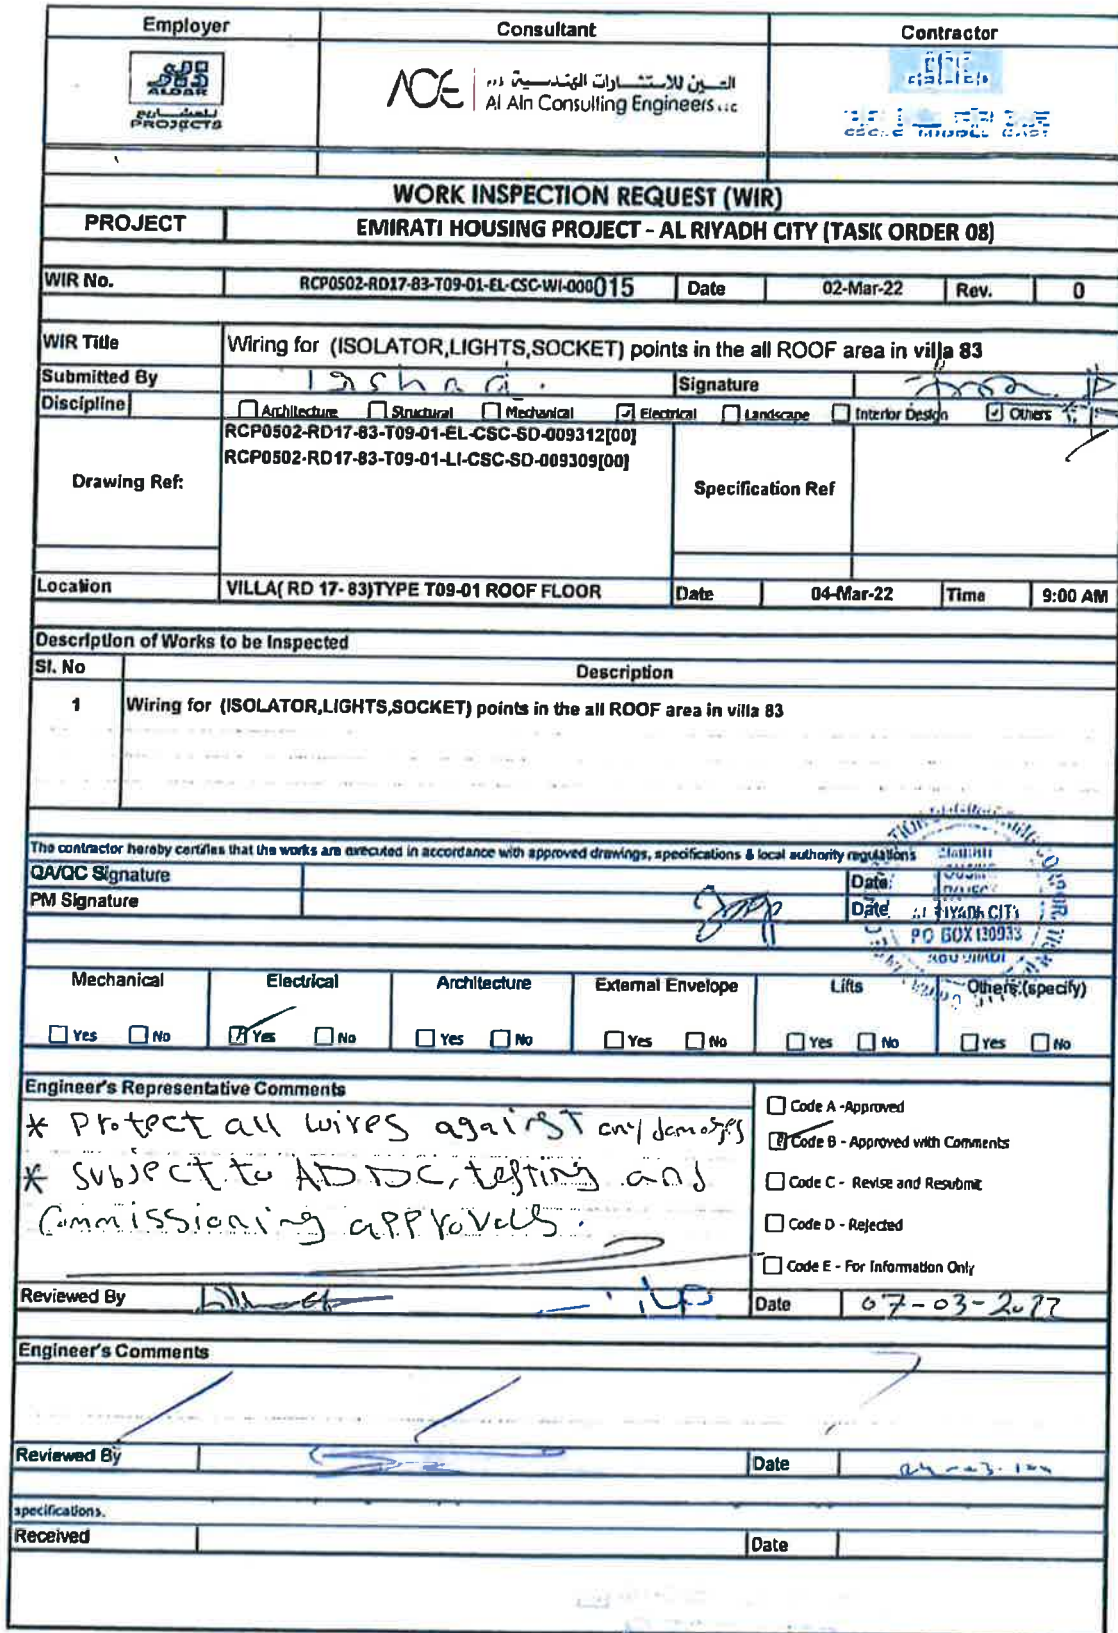 Employer
Consultant
Contractor
ALDAR
PROJECTS
ACE
Al Ain Consulting Engineers LLC
WORK INSPECTION REQUEST (WIR)
PROJECT
EMIRATI HOUSING PROJECT - AL RIYADH CITY (TASK ORDER 08)
WIR No. RCP0502-RD17-83-T09-01-EL-CSC-WI-000015 Date 02-Mar-22 Rev. 0
WIR Title Wiring for (ISOLATOR,LIGHTS,SOCKET) points in the all ROOF area in villa 83
Submitted By Signature
Discipline Architecture Structural Mechanical Electrical Landscape Interior Design Others
RCP0502-RD17-83-T09-01-EL-CSC-SD-009312[00]
RCP0502-RD17-83-T09-01-LI-CSC-SD-009309[00]
Drawing Ref: Specification Ref
Location VILLA( RD 17- 83)TYPE T09-01 ROOF FLOOR Date 04-Mar-22 Time 9:00 AM
Description of Works to be Inspected
Sl. No Description
1 Wiring for (ISOLATOR,LIGHTS,SOCKET) points in the all ROOF area in villa 83
The contractor hereby certifies that the works are executed in accordance with approved drawings, specifications & local authority regulations
QA/QC Signature Date:
PM Signature Date
AL RIYADH CITY
PO BOX 130933
Mechanical Electrical Architecture External Envelope Lifts Others:(specify)
Yes No Yes No Yes No Yes No Yes No Yes No
Engineer's Representative Comments
* Protect all wires against any damages
* Subject to ADDC, testing and
Commissioning approvals.
Code A -Approved
Code B - Approved with Comments
Code C - Revise and Resubmit
Code D - Rejected
Code E - For Information Only
Reviewed By Date 07-03-2022
Engineer's Comments
Reviewed By Date
specifications.
Received Date